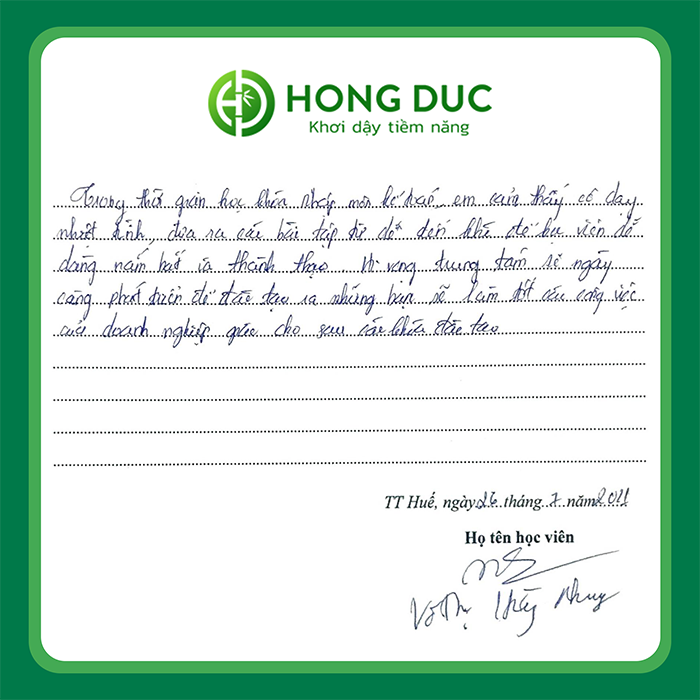 HONG DUC
Khơi dậy tiềm năng
Trong thời gian học khóa nhập môn kế toán, em cảm thấy cô dạy
nhiệt tình, đưa ra các bài tập từ dễ đến khó để học viên dễ
dàng nắm bắt và thành thạo. Hi vọng trung tâm sẽ ngày
càng phát triển để đào tạo ra những bạn sẽ làm tốt các công việc
của doanh nghiệp giao cho sau các khóa đào tạo
TT Huế, ngày 26 tháng 7 năm 2011
Họ tên học viên
Võ Thị Nhung